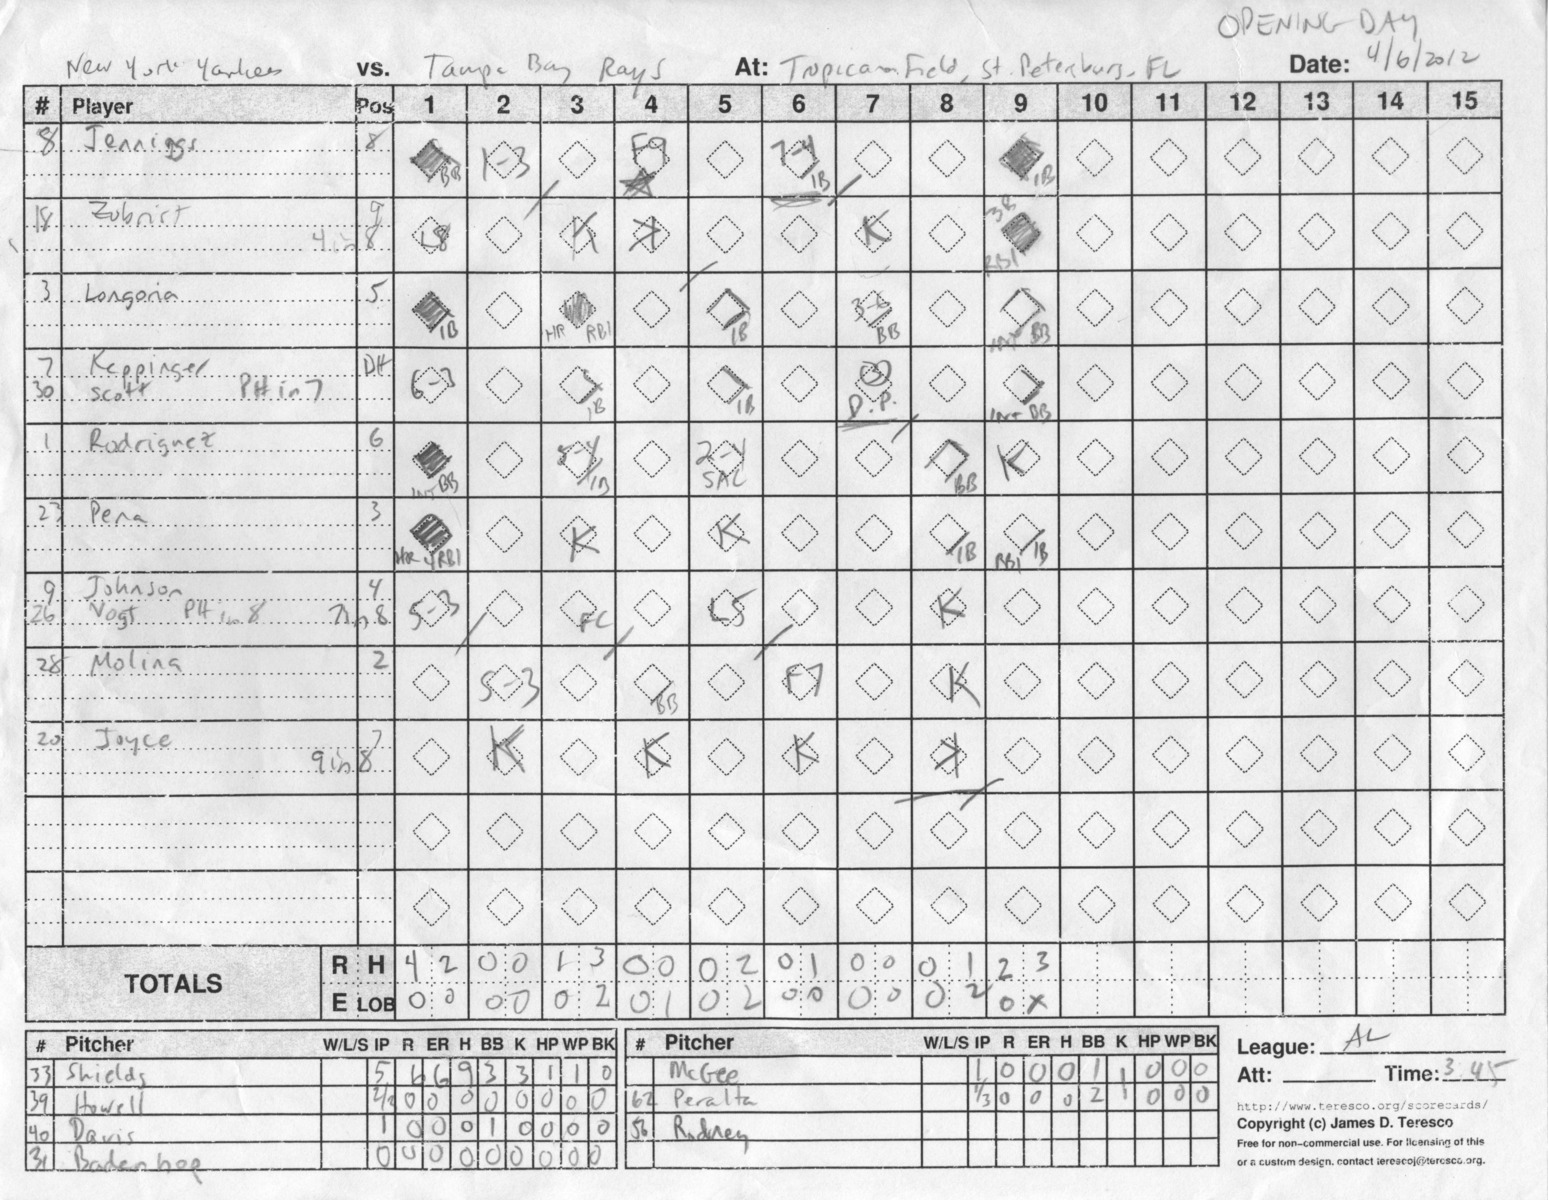 OPENING DAY
New York Yankees vs. Tampa Bay Rays At: Tropicana Field, St. Petersburg, FL Date: 4/6/2012
# Player Pos 1 2 3 4 5 6 7 8 9 10 11 12 13 14 15
8 Jennings 8 BB 1-3 F9 7-4 1B 1B
18 Zobrist 9 L8 K K K 3B
4 in 8 RBI
3 Longoria 5 1B HR RBI 1B 3-6 BB INT BB
7 Keppinger DH 6-3 1B 1B
30 Scott PH in 7 D.P. INT BB
1 Rodriguez 6 INT BB 5-4 1B 2-4 SAC BB K
23 Pena 3 HR 4RBI K K 1B RBI 1B
9 Johnson 4 5-3 FC L5 K
26 Vogt PH in 8 7in8
28 Molina 2 5-3 BB F7 K
20 Joyce 7 K K K K
9in8
TOTALS
R H 4 2 0 0 1 3 0 0 0 2 0 1 0 0 0 1 2 3
E LOB 0 0 0 0 0 2 0 1 0 2 0 0 0 0 0 2 0 X
# Pitcher W/L/S IP R ER H BB K HP WP BK
33 Shields 5 6 6 9 3 3 1 1 0
39 Howell 2/3 0 0 0 0 0 0 0 0
40 Davis 1 0 0 0 1 0 0 0 0
31 Badenhop 0 0 0 0 0 0 0 0 0
# Pitcher W/L/S IP R ER H BB K HP WP BK
McGee 1 0 0 0 1 1 0 0 0
62 Peralta 1/3 0 0 0 2 1 0 0 0
56 Rodney
League: AL
Att: Time: 3:45
http://www.teresco.org/scorecards/
Copyright (c) James D. Teresco
Free for non-commercial use. For licensing of this
or a custom design, contact terescoj@teresco.org.